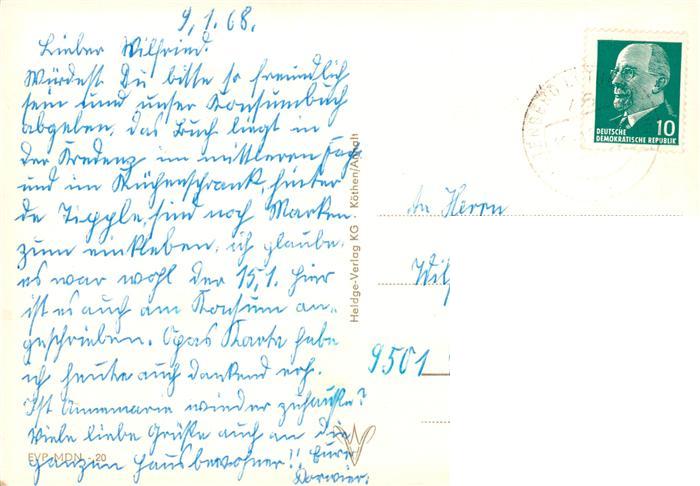 9.1.68.
Lieber Wilfried.
Würdest Du bitte so freundlich
sein und unser Konsumbuch
abgeben, das Buch liegt in
der Kredenz im mittleren Fach
und im Küchenschrank, hinter
de Tipple, sind noch Marken
zum einkleben, ich glaube,
es war wohl der 15.1. hier
ist es auch am Konsum an-
geschrieben. Opas Karte habe
ich heute auch dankend erh.
Ist Annemarie wieder zuhause?
Viele liebe Grüße auch an die
ganzen Hausbewohner!! Eure
EVP MDN -.20
Heldge-Verlag KG Köthen/Anhalt
DEUTSCHE
DEMOKRATISCHE REPUBLIK
10
An Herrn
Wil
9501